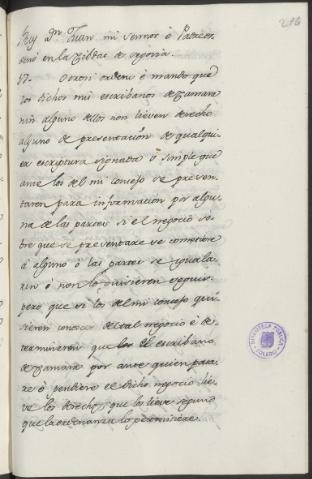 276
Rey Dn. Juan mi sennor è Padre es
seno en la Zibdat de segovia.
57. Otrosi ordeno è mando que
los dichos mis escribanos de camara
nin alguno dellos non lieven derecho
alguno de presentación de qualqui-
er escriptura signada ó simple que
ante los del mi consejo se presen-
taren para informacion por algu-
na de las partes si el negocio so-
bre que se presentare se cometiere
á alguno ó las partes se iguala-
ren ó non lo quisieren seguir.
pero que si los del mi consejo qui-
sieren conocer del tal negocio è de-
terminaren que los escribanos
de camara por ante quien pasa-
re ó pendiere el dicho negocio lie-
ve los derechos que los lieve segund
que la ordenanza lo permitiere.
BIBLIOTECA PUBLICA
TOLEDO